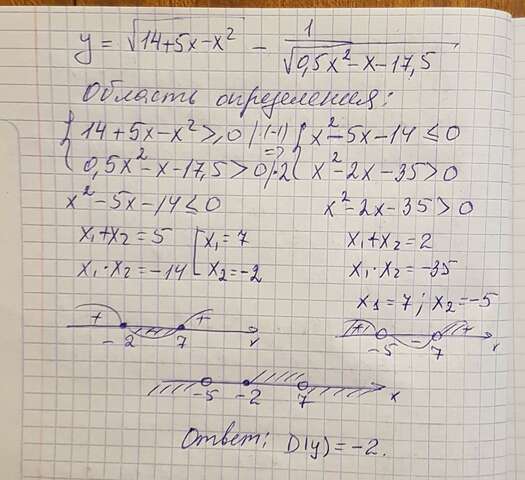 y = √(14+5x-x²) - 1/√(0,5x²-x-17,5)
Область определения:
{ 14+5x-x² ≥ 0 | ·(-1) => { x²-5x-14 ≤ 0
{ 0,5x²-x-17,5 > 0 | ·2 { x²-2x-35 > 0
x²-5x-14 ≤ 0 x²-2x-35 > 0
x₁+x₂ = 5 [ x₁ = 7 x₁+x₂ = 2
x₁·x₂ = -14 [ x₂ = -2 x₁·x₂ = -35
x₁ = 7; x₂ = -5
+ - + + - +
-2 7 x -5 7 x
-5 -2 7 x
Ответ: D(y) = -2.